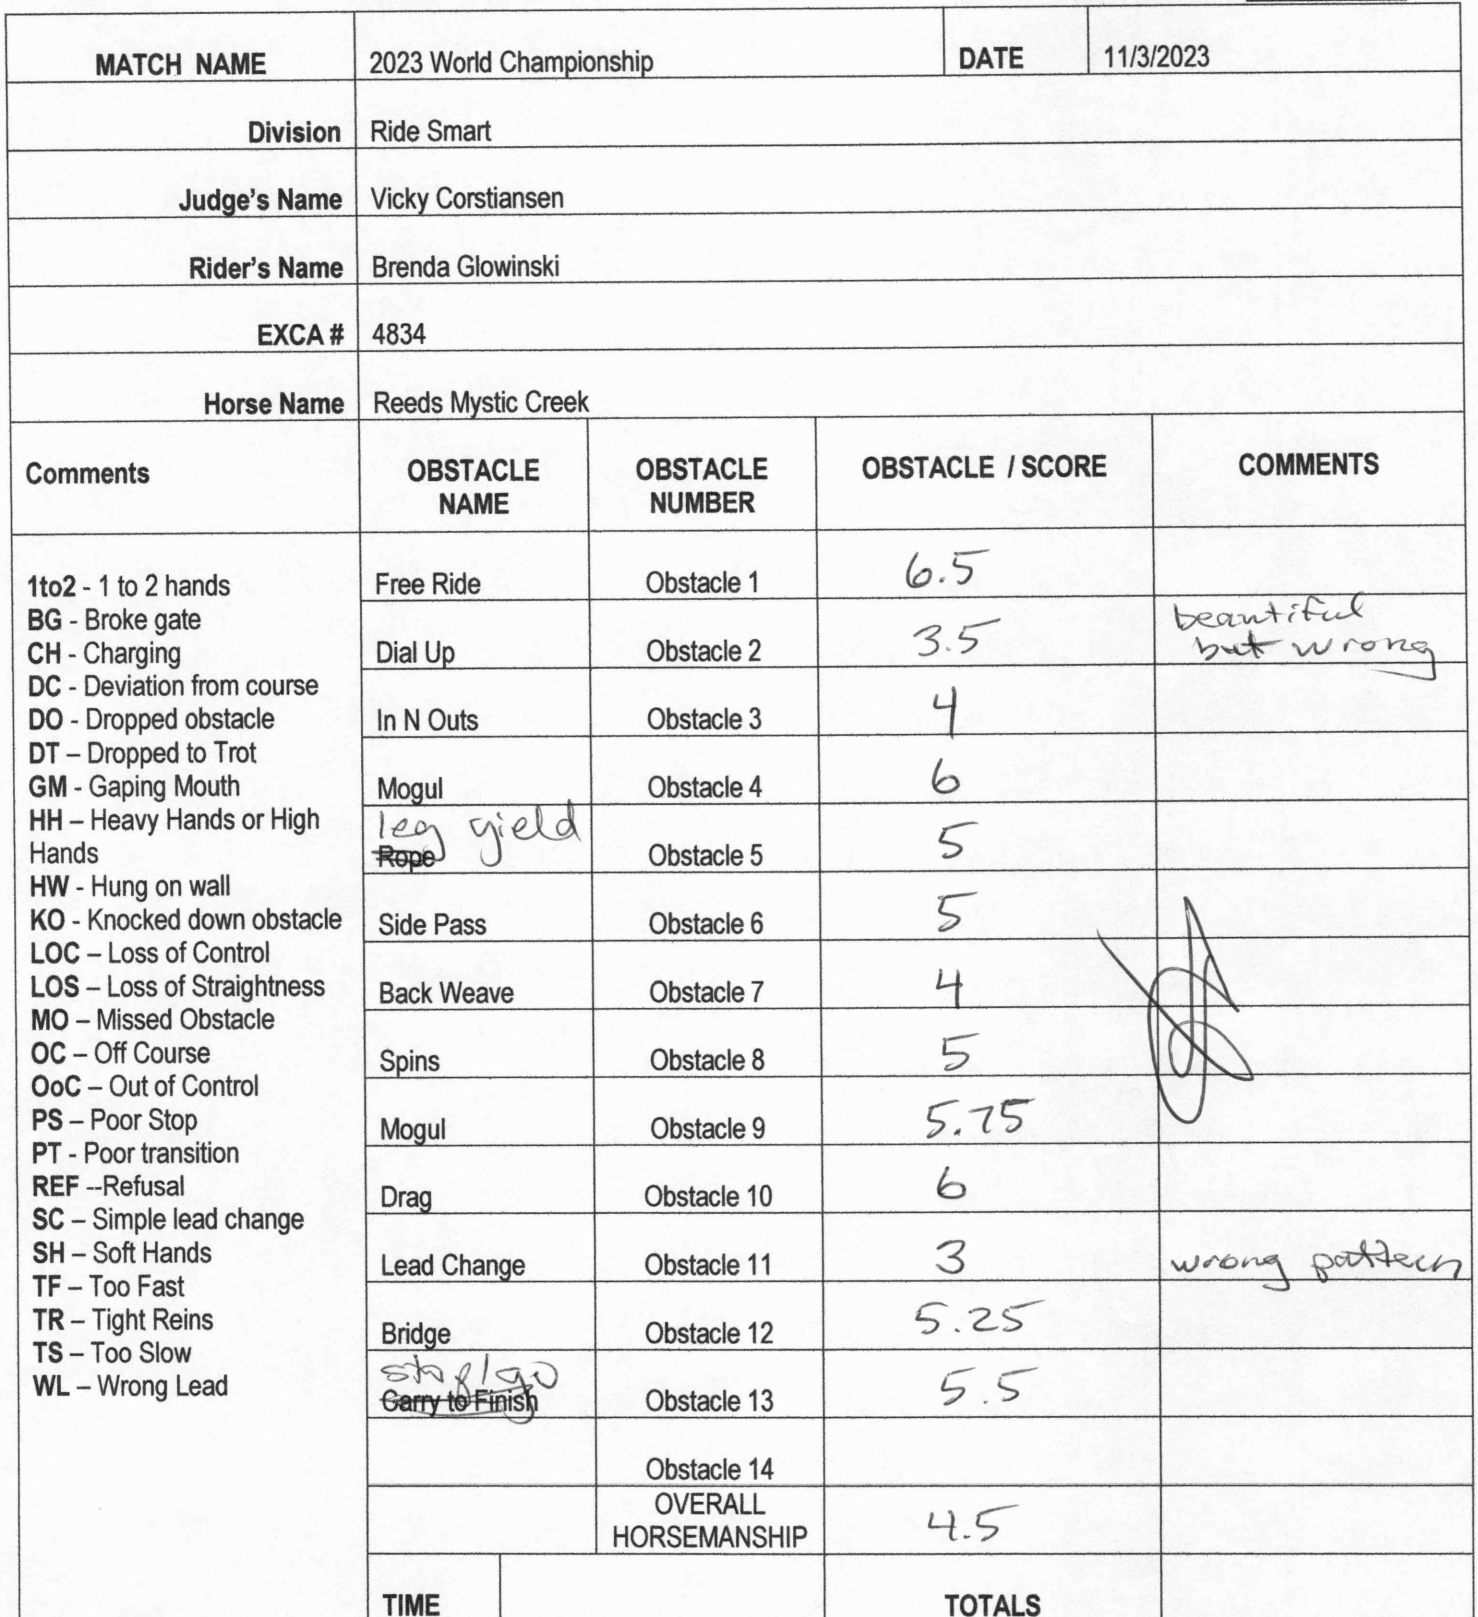 MATCH NAME 2023 World Championship DATE 11/3/2023
Division Ride Smart
Judge's Name Vicky Corstiansen
Rider's Name Brenda Glowinski
EXCA # 4834
Horse Name Reeds Mystic Creek
Comments OBSTACLE NAME OBSTACLE NUMBER OBSTACLE / SCORE COMMENTS
1to2 - 1 to 2 hands
BG - Broke gate
CH - Charging
DC - Deviation from course
DO - Dropped obstacle
DT – Dropped to Trot
GM - Gaping Mouth
HH – Heavy Hands or High
Hands
HW - Hung on wall
KO - Knocked down obstacle
LOC – Loss of Control
LOS – Loss of Straightness
MO – Missed Obstacle
OC – Off Course
OoC – Out of Control
PS – Poor Stop
PT - Poor transition
REF --Refusal
SC – Simple lead change
SH – Soft Hands
TF – Too Fast
TR – Tight Reins
TS – Too Slow
WL – Wrong Lead
Free Ride Obstacle 1 6.5
Dial Up Obstacle 2 3.5 beautiful
but wrong
In N Outs Obstacle 3 4
Mogul Obstacle 4 6
leg yield
Rope Obstacle 5 5
Side Pass Obstacle 6 5
Back Weave Obstacle 7 4
Spins Obstacle 8 5
Mogul Obstacle 9 5.75
Drag Obstacle 10 6
Lead Change Obstacle 11 3 wrong pattern
Bridge Obstacle 12 5.25
stop/go
Carry to Finish Obstacle 13 5.5
Obstacle 14
OVERALL
HORSEMANSHIP 4.5
TIME TOTALS